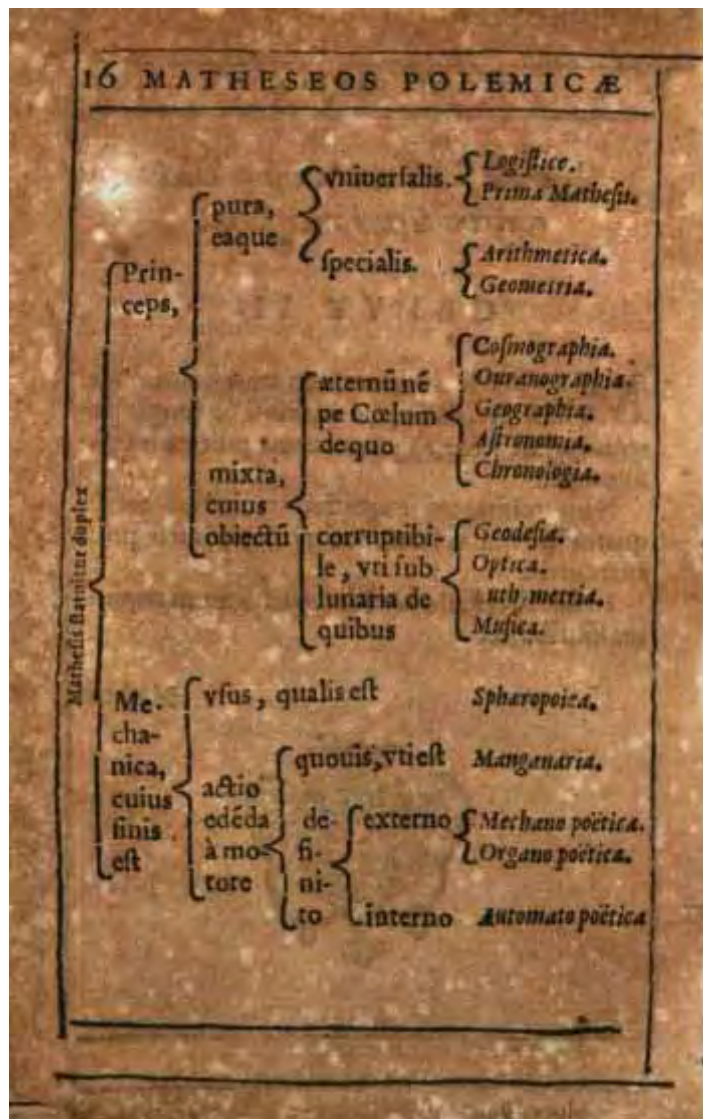 16 MATHESEOS POLEMICÆ
Mathesis statuitur duplex
Prin-
ceps,
pura,
eaque
vniuersalis.
Logistice.
Prima Mathesis.
specialis.
Arithmetica.
Geometria.
mixta,
cuius
obiectū
æternū nē
pe Cœlum
de quo
Cosmographia.
Ouranographia.
Geographia.
Astronomia.
Chronologia.
corruptibi-
le, vti sub
lunaria de
quibus
Geodesia.
Optica.
metria.
Musica.
Me-
cha-
nica,
cuius
finis
est
vsus, qualis est
Sphæropoiea.
actio
edēda
à mo-
tore
quouis, vti est
Manganaria.
de-
fi-
ni-
to
externo
Mechano poëtica.
Organo poëtica.
interno
Automato poëtica